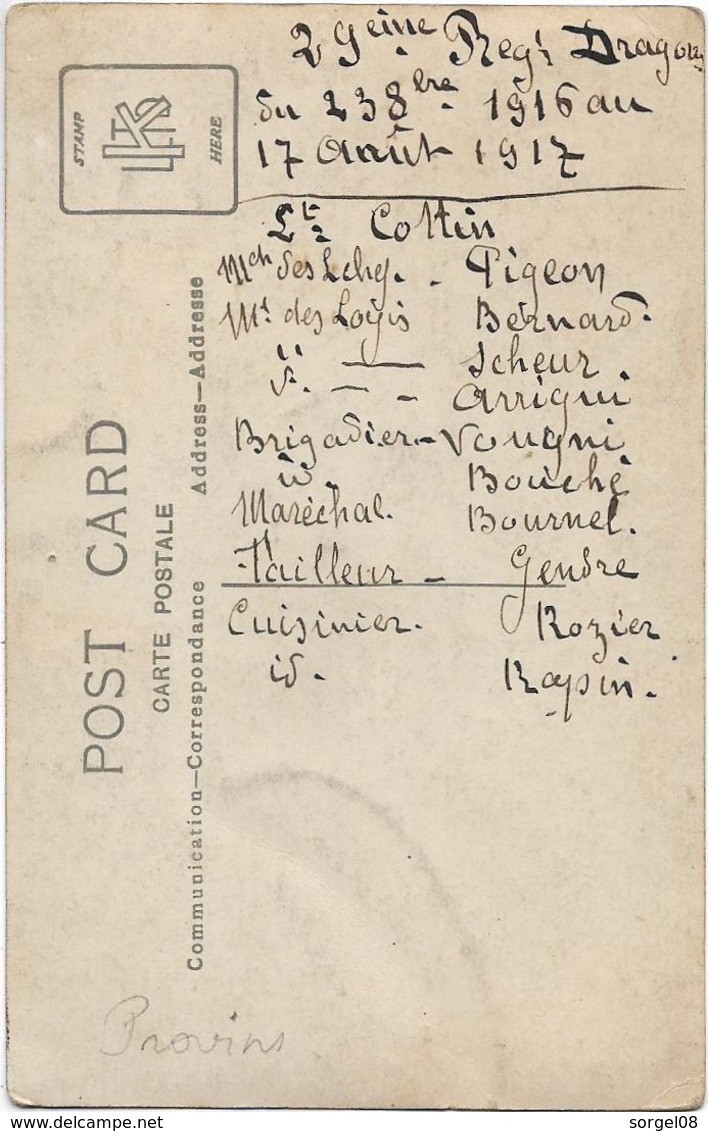 29eme Regt Dragons
du 23 8bre 1916 au
17 Août 1917
Lt Cottin
Mch des Lchef. - Pigeon
Mt des Logis Bernard.
id. — Scheur.
id. - - Arrigui
Brigadier - Vougni
id. Bouché
Maréchal. Bournel.
Tailleur - Gendre
Cuisinier. Rozier
id. Rapin.
STAMP HERE
POST CARD
CARTE POSTALE
Communication—Correspondance Address—Addresse
Provins
www.delcampe.net
sorgel08